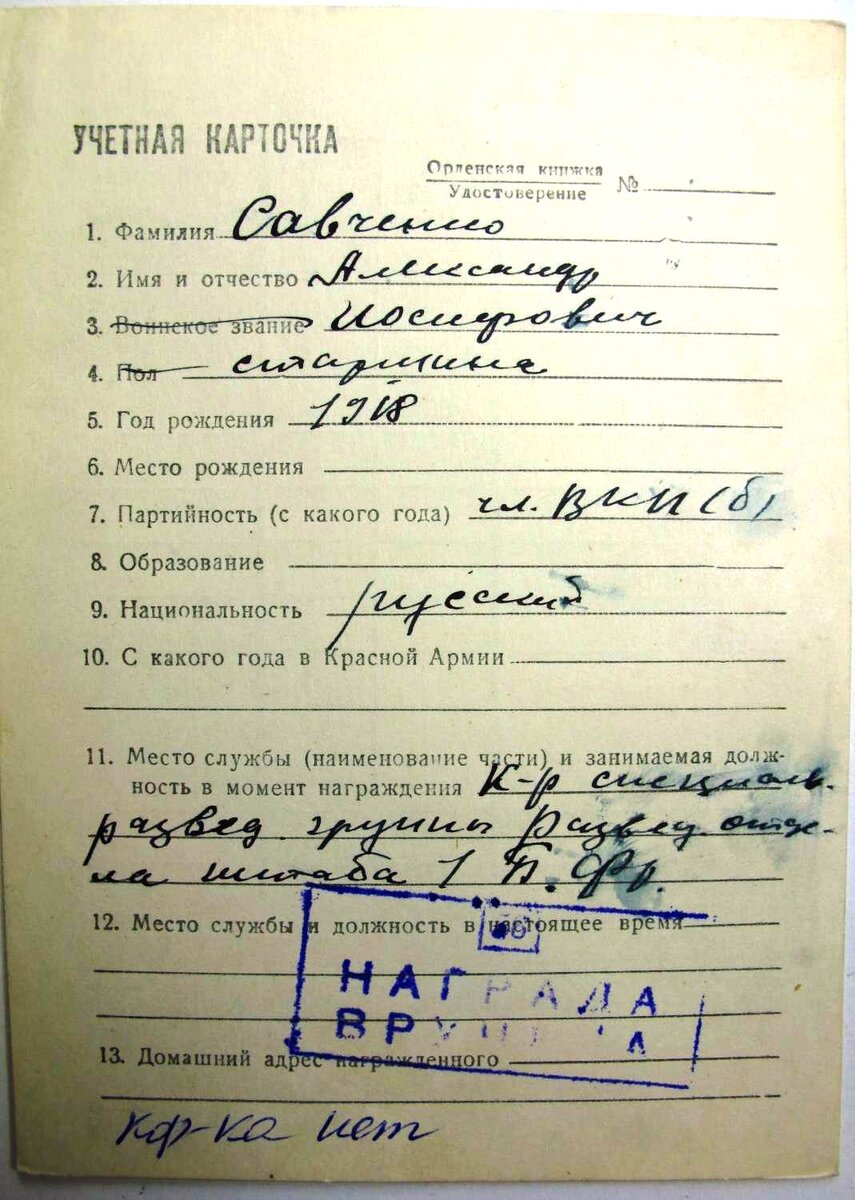 УЧЕТНАЯ КАРТОЧКА
Орденская книжка
Удостоверение №
1. Фамилия Савченко
2. Имя и отчество Александр
3. Воинское звание Иосифович
4. Пол старшина
5. Год рождения 1918
6. Место рождения
7. Партийность (с какого года) чл. ВКП(б)
8. Образование
9. Национальность русский
10. С какого года в Красной Армии
11. Место службы (наименование части) и занимаемая долж-
ность в момент награждения К-р специальн.
развед группы развед отде-
ла штаба 1 П. Фр.
12. Место службы и должность в настоящее время
НАГРАДА
ВРУЧЕНА
13. Домашний адрес награжденного
кф-ка нет